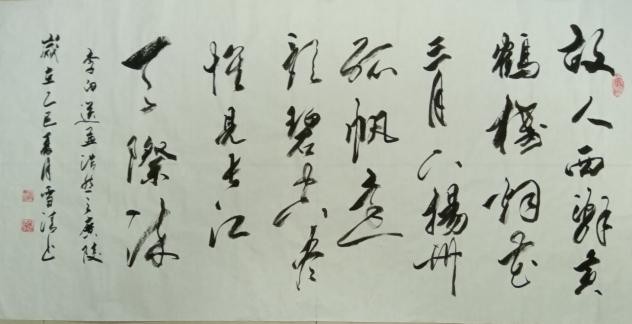 故人西辭黃
鶴樓烟花
三月下揚州
孤帆遠
影碧空尽
惟見長江
天際流
李白送孟浩然之廣陵
歲在乙巳春月雪清书